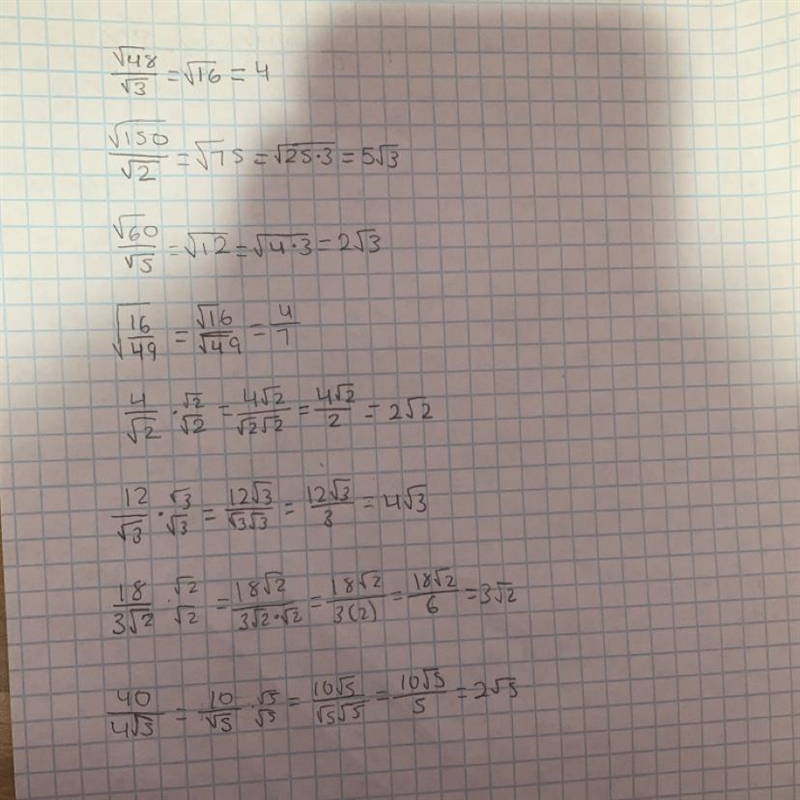 √48/√3 = √16 = 4
√150/√2 = √75 = √25·3 = 5√3
√60/√5 = √12 = √4·3 = 2√3
√16/49 = √16/√49 = 4/7
4/√2 · √2/√2 = 4√2/√2√2 = 4√2/2 = 2√2
12/√3 · √3/√3 = 12√3/√3√3 = 12√3/3 = 4√3
18/3√2 · √2/√2 = 18√2/3√2·√2 = 18√2/3(2) = 18√2/6 = 3√2
40/4√5 = 10/√5 · √5/√5 = 10√5/√5√5 = 10√5/5 = 2√5